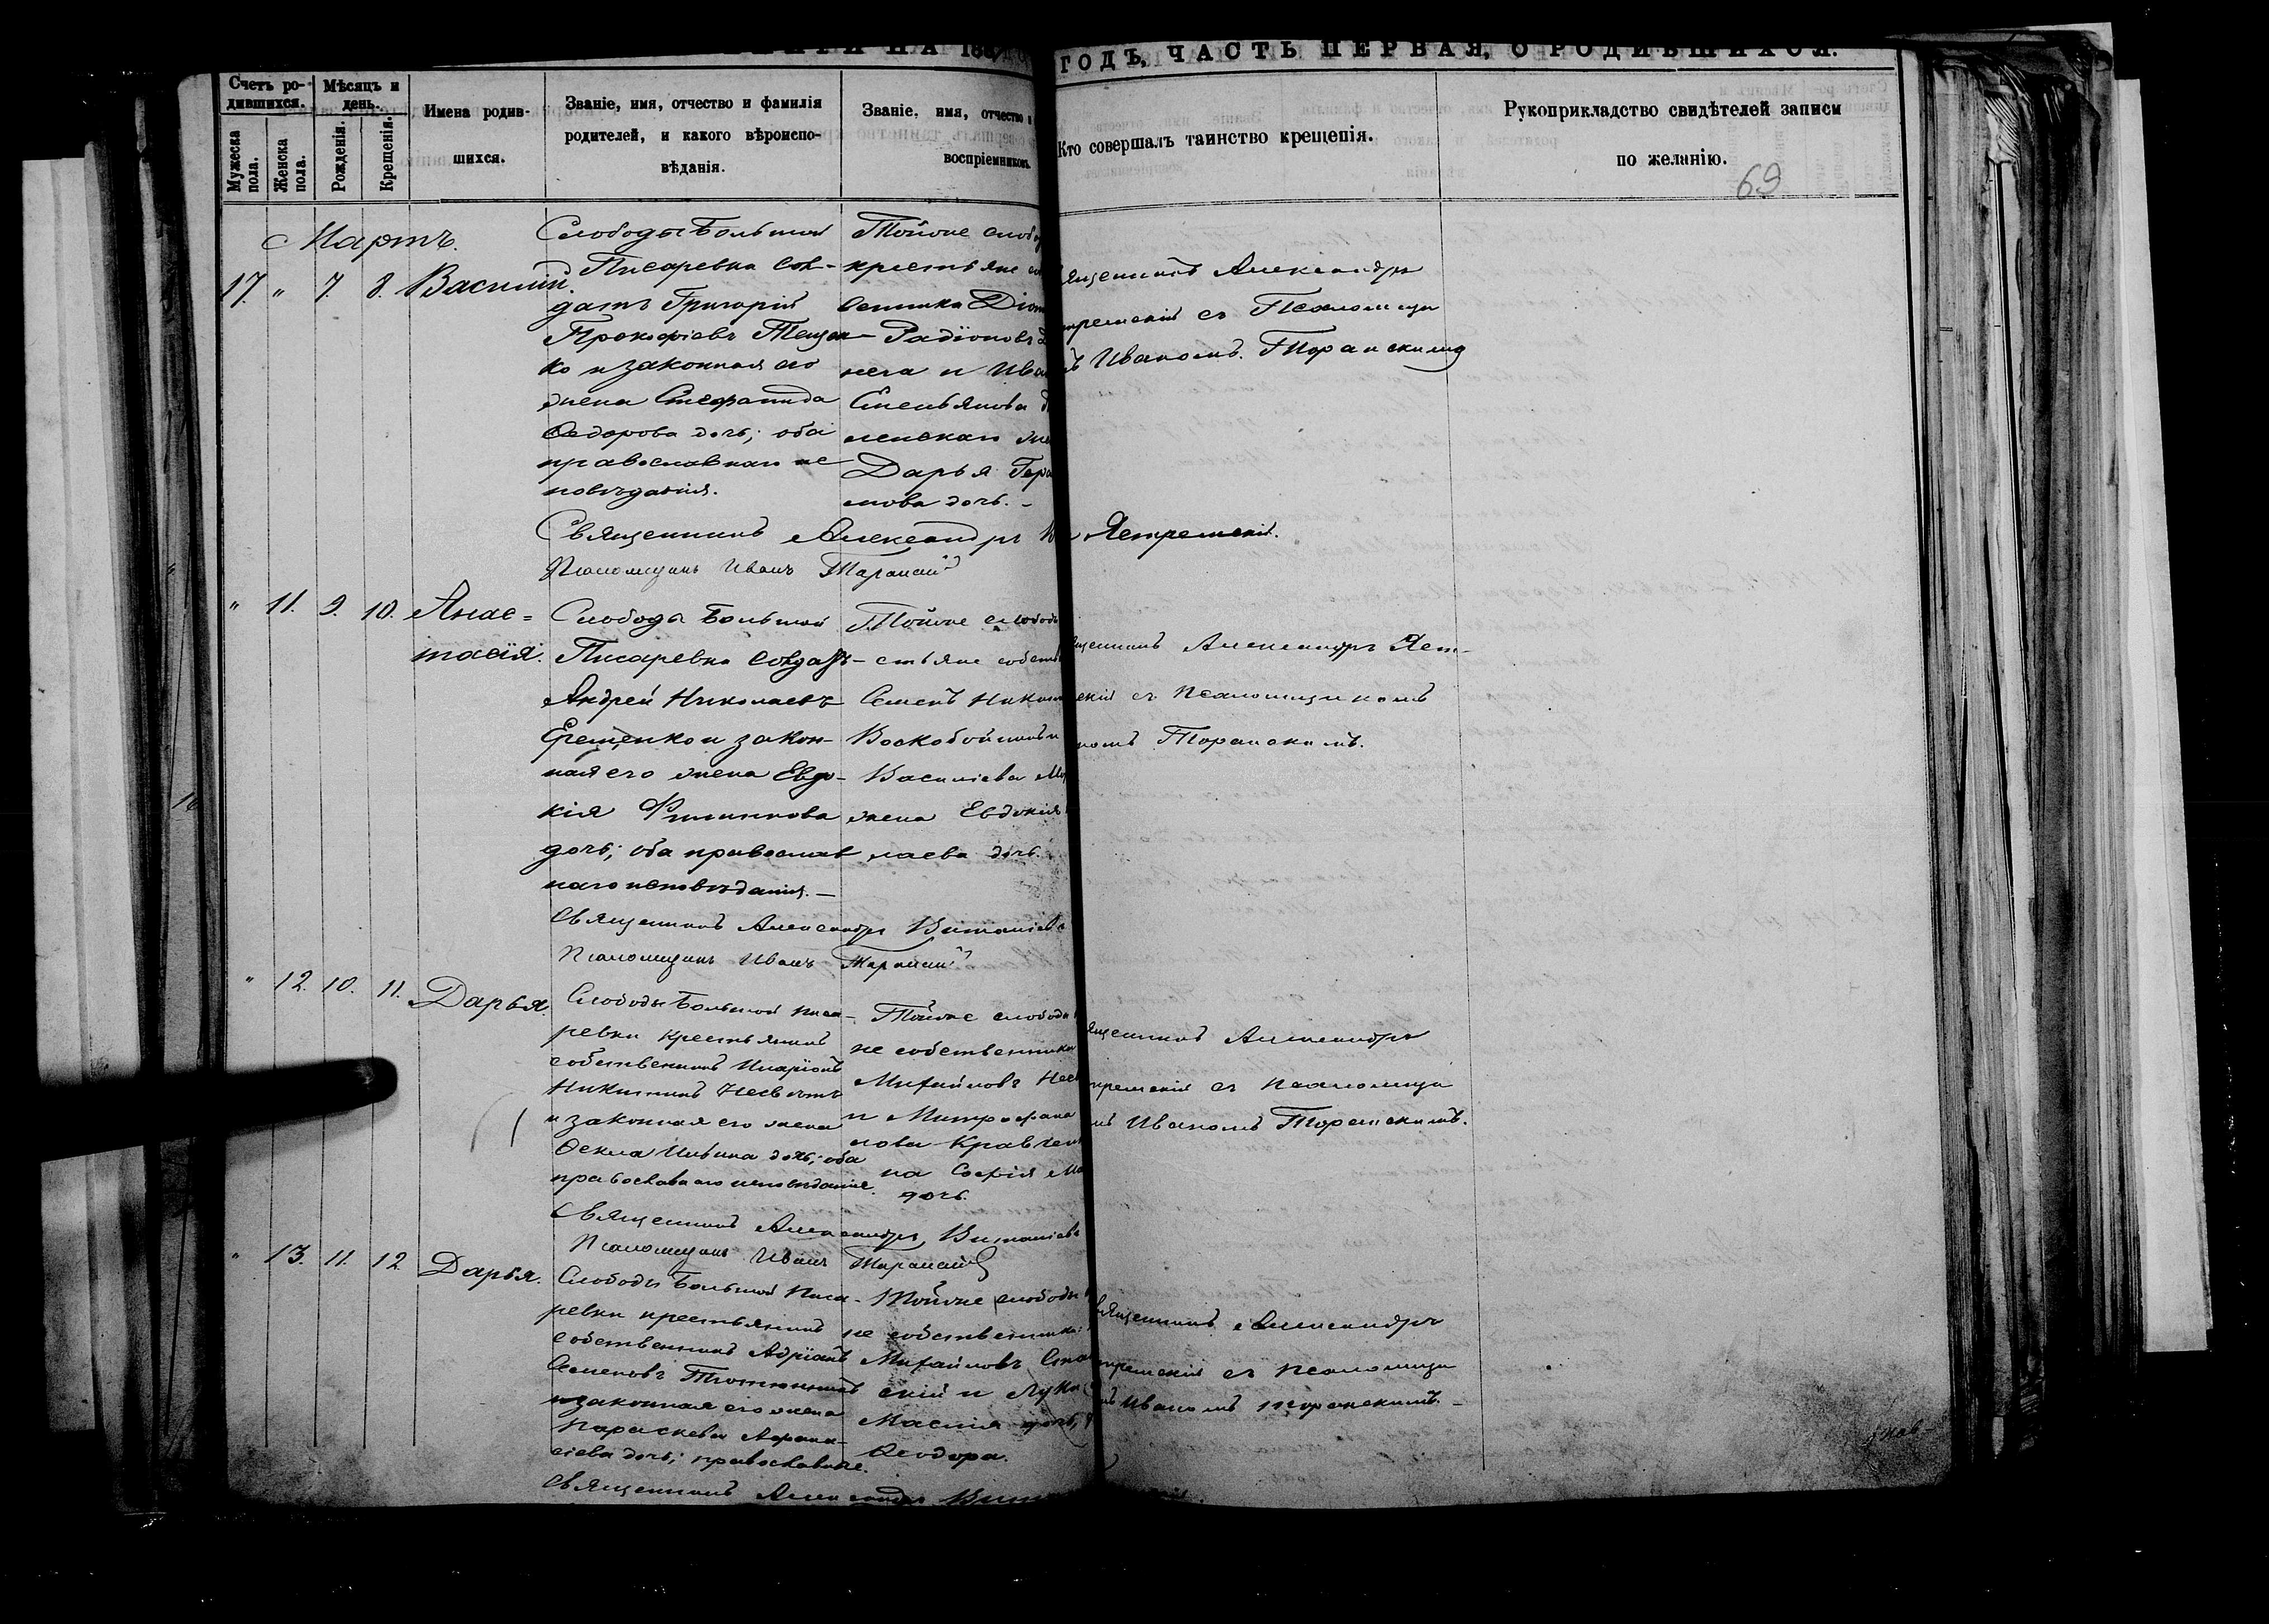 ГОДЪ, ЧАСТЬ ПЕРВАЯ, О РОДИВШИХСЯ.
Счетъ ро-
дившихся.
Мужеска
пола.
Женска
пола.
Мѣсяцъ и
день.
Рожденія.
Крещенія.
Имена родив-
шихся.
Званіе, имя, отчество и фамилія
родителей, и какого вѣроиспо-
вѣданія.
Званіе, имя, отчество и
воспріемниковъ.
Кто совершалъ таинство крещенія.
Рукоприкладство свидѣтелей записи
по желанію.
69
Мартъ.
17. " 7. 8. Василій.
Слободы Большой
Писаревки сол-
датъ Григорій
Прокофіевъ Тещен-
ко и законная его
жена Стефанида
Ѳедорова дочь; оба
православнаго ис
повѣданія.
Тойже слобо
крестьяне со
венника
Радіоновъ
и Ива
Емельянова
жен
Дарья Гера
мова дочь. -
ященникъ Александръ
тремскій съ Псаломщи
мъ Иваномъ Торанскимъ
Священникъ Александръ
Ястремскій.
Псаломщикъ Иванъ Торанскій
" 11. 9. 10. Анас=
тасія.
Слободы Большой
Писаревки солдатъ
Андрей Николаевъ
Ерещенко и закон-
ная его жена Евдо-
кія Филиппова
дочь; оба православ
наго исповѣданія. -
Тойже слободы
стьяне собств
Семенъ Никит
Воскобойникъ и
Василіева
жена Евдокія
лаева дочь.
ященникъ Александръ Яст-
скій съ Псаломщикомъ
номъ Торанскимъ.
Священникъ Александръ Виталіевъ
Псаломщикъ Иванъ Торанскій
" 12. 10. 11. Дарья.
Слободы Большой Писа-
ревки крестьянинъ
собственникъ Иларіонъ
Никитинъ
и законная его жена
Ѳекла Ильина дочь; оба
православнаго исповѣданія.
Тойже слободы
не собственники
Михайловъ
и Митрофана
лова Кравчен
на Софія
дочь.
ященникъ Александръ
тремскій съ Псаломщи
мъ Иваномъ Торанскимъ.
Священникъ Александръ Виталіевъ
Псаломщикъ Иванъ Торанскій
" 13. 11. 12 Дарья.
Слободы Большой Писа-
ревки крестьянинъ
собственникъ Адріанъ
Семеновъ Тютюнникъ
и законная его жена
Параскева Афана-
сіева дочь; православные.
Тойже слободы
не собственники:
Михайловъ
скій и Лука
дочь
Ѳеодора.
вященникъ Александръ
тремскій съ Псаломщи
мъ Иваномъ Торанскимъ. -
Священникъ Александръ